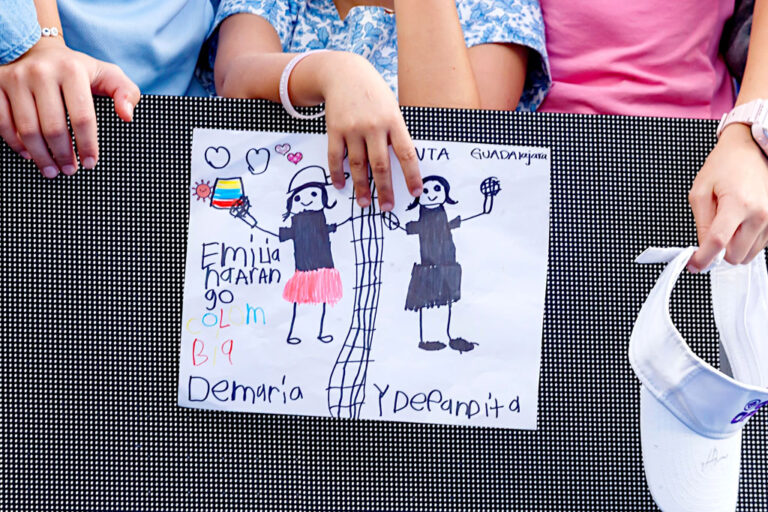 UTA GUADALajara
Emilia
nAARAN
go
COLOM
Bia
Demaria Y DePanDita